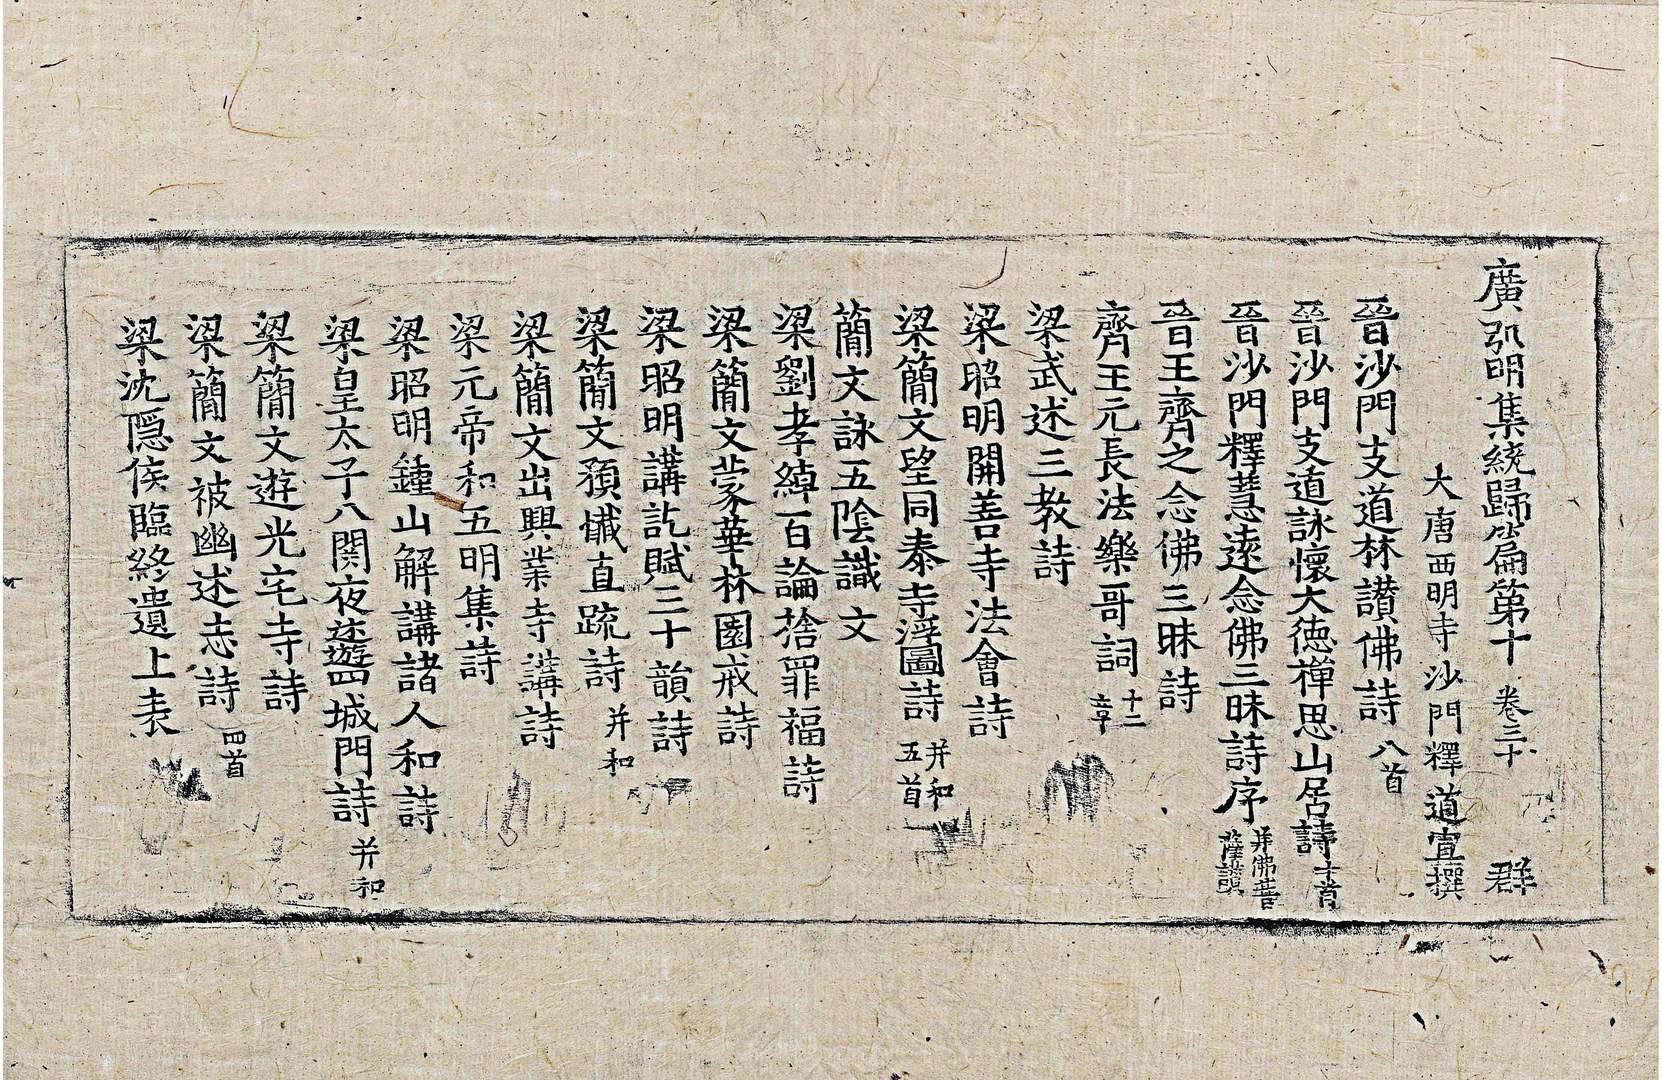 廣弘明集統歸篇第十 卷三十 群
大唐西明寺沙門釋道宣撰
晉沙門支道林讚佛詩 八首
晉沙門支遁詠懷大德禪思山居詩 十首
晉沙門釋慧遠念佛三昧詩序 并佛菩薩讚
晉王齊之念佛三昧詩
齊王元長法樂哥詞 十二章
梁武述三教詩
梁昭明開善寺法會詩
梁簡文望同泰寺浮圖詩 并和五首
簡文詠五陰識文
梁劉孝綽百論捨罪福詩
梁簡文蒙華林園戒詩
梁昭明講訖賦三十韻詩
梁簡文預懺直疏詩 并和
梁簡文出興業寺講詩
梁元帝和五明集詩
梁昭明鍾山解講諸人和詩
梁皇太子八関夜述遊四城門詩 并和
梁簡文遊光宅寺詩
梁簡文被幽述志詩 四首
梁沈隠侯臨終遺上表